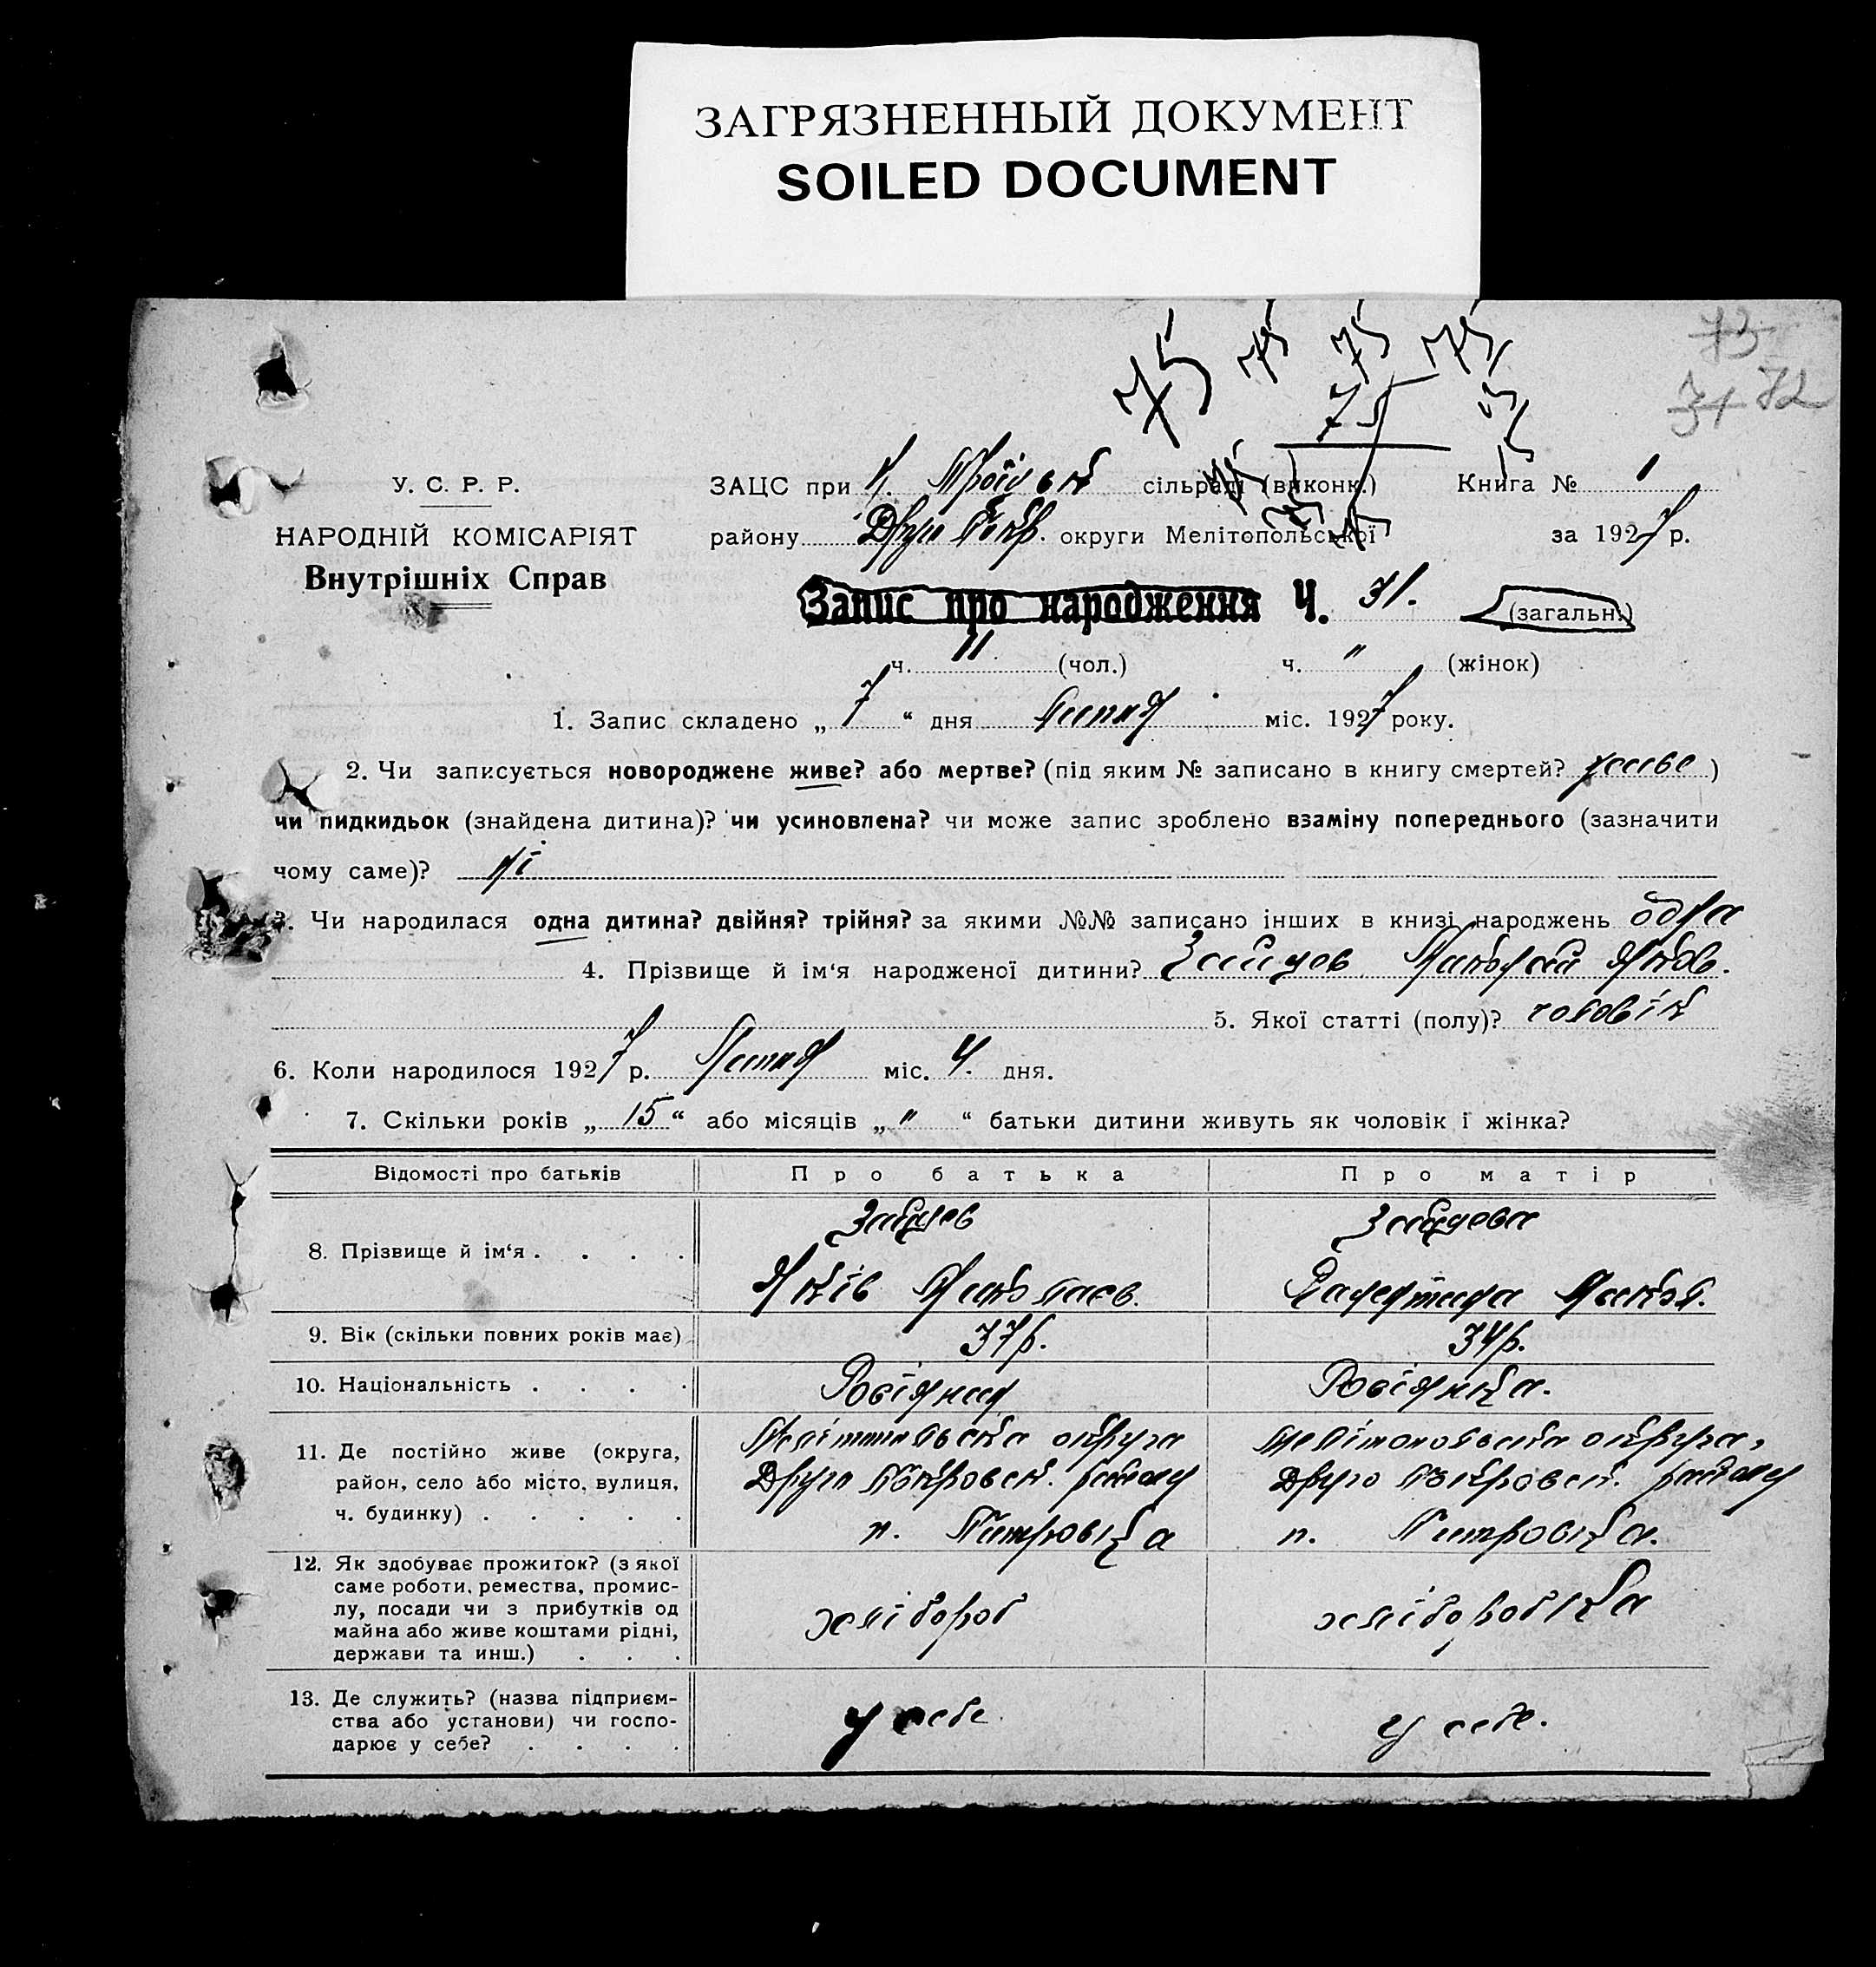 ЗАГРЯЗНЕННЫЙ ДОКУМЕНТ
SOILED DOCUMENT
75 75 75 75
73
75
71 72
У. С. Р. Р.
ЗАЦС при сільраді (виконк.) Книга № 1
НАРОДНІЙ КОМІСАРІЯТ
району округи Мелітопольської за 1927 р.
Внутрішніх Справ
Запис про народження Ч. 31. (загальн.)
ч. 11 (чол.) ч. " (жінок)
1. Запис складено „ 7 “ дня міс. 1927 року.
2. Чи записується новороджене живе? або мертве? (під яким № записано в книгу смертей? живе )
чи пидкидьок (знайдена дитина)? чи усиновлена? чи може запис зроблено взаміну попереднього (зазначити
чому саме)? ні
3. Чи народилася одна дитина? двійня? трійня? за якими №№ записано інших в книзі народжень одна
4. Прізвище й ім‘я народженої дитини? Зайцев Яков.
5. Якої статті (полу)? чоловік
6. Коли народилося 1927 р. міс. 4. дня.
7. Скільки років „ 15 “ або місяців „ " “ батьки дитини живуть як чоловік і жінка?
Відомості про батьків Про батька Про матір
Зайцев Зайцева
8. Прізвище й ім‘я . . . .
Яків Миколаєв.
9. Вік (скільки повних років має) 37р. 34р.
10. Національність . . . . Росіянин Росіянка.
11. Де постійно живе (округа, Мелітопольська округа Мелітопольська округа,
район, село або місто, вулиця, Друго Покровськ. району Друго Покровськ. району
ч. будинку) . . . . . п. Петровка п. Петровка.
12. Як здобуває прожиток? (з якої
саме роботи, ремества, промис-
лу, посади чи з прибутків од хлібороб хліборобка
майна або живе коштами рідні,
держави та инш.) . . .
13. Де служить? (назва підприєм-
ства або установи) чи госпо- у себе у себе.
дарює у себе? . . . .